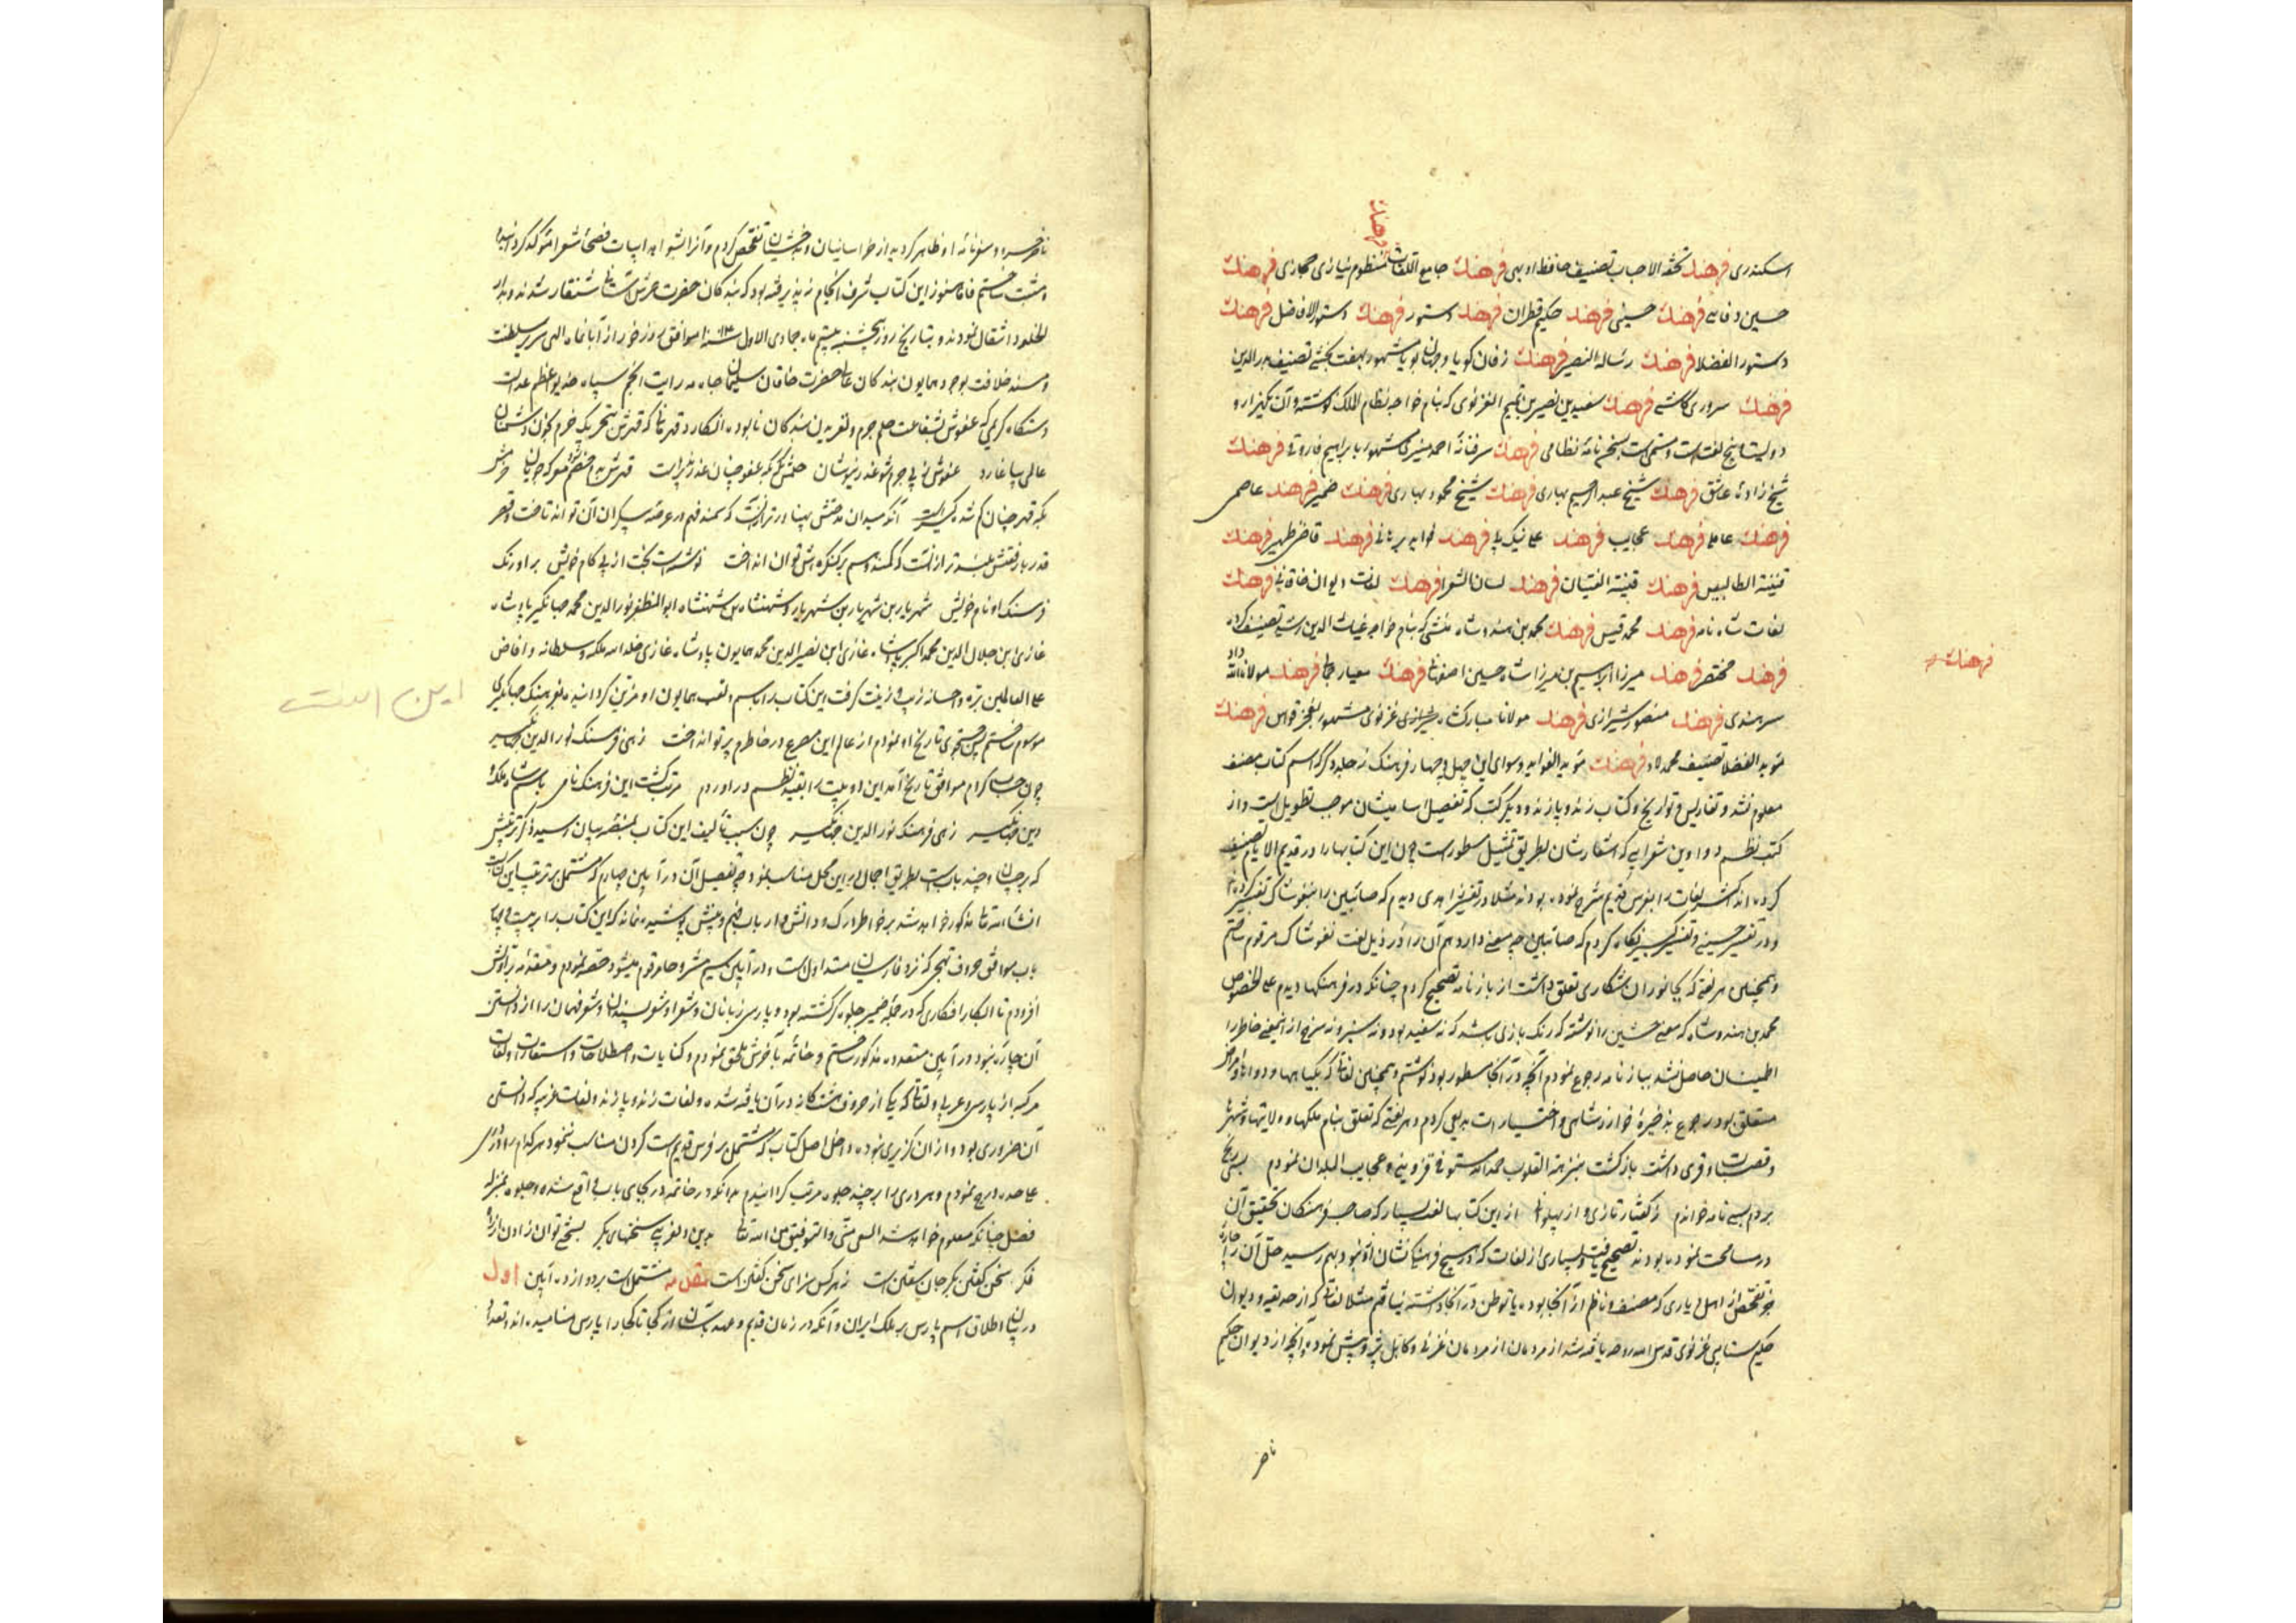 اسکندری فرهنك تحفة الاحباب تصنیف حافظ اوبهی فرهنك جامع اللغات منظوم نیازی حجازی فرهنك
حسین وفاے فرهنك حسینی فرهنك حکیم قطران فرهنك دستور فرهنك دستور الافاضل فرهنك
دستور الفضلا فرهنك رساله النصیر فرهنك زفان کویا و جهان پویا مشهور بهفت بخشی تصنیف بدرالدین
فرهنك سروری کاشے فرهنك سعید بن نصیر بن تمیم الغزنوی که بنام خواجه نظام الملک نوشته و آن
دویست پنج لغت است و مسمی است بسخن نامه نظامی فرهنك سرفنامه احمد منیری مشهور بابراهیم فاروقے فرهنك
شیخ زاده عاشق فرهنك شیخ عبدالرحیم بهاری فرهنك شیخ محمود بهاری فرهنك ضمیر فرهنك عاصمی
فرهنك عاملے فرهنك عجایب فرهنك علے نیک پے فرهنك فوایه برهانے فرهنك قاضی ظهیر فرهنك
قنیة الطالبین فرهنك قنیة الفتیان فرهنك لسان الشعرا فرهنك لغات دیوان خاقانے فرهنك
لغات شاه نامه فرهنك محمد قیس فرهنك محمد بن هندوشاه منشی که بنام خواجه غیاث الدین رشید تصنیف کرده
فرهنك مختصر فرهنك میرزا ابراهیم بن میرزا شاه حسین اصفهانے فرهنك معیار جمالے فرهنك مولانا الله داد
سرهندی فرهنك منصور شیرازی فرهنك مولانا مبارکشاه غزنوی مشهور بفخر قواس فرهنك
موید الفضلا تصنیف محمد لاد فرهنك موید الفواید و سوای این چهل و چهار فرهنک نه جلد دیگر که اسم کتاب و مصنف
معلوم نشد و تفاریس و تواریخ و کتاب زند و پازند و دیگر کتب که تفصیل اسامیشان موجب تطویل است و از
کتب نظم و دواوین شعرایے که اشعارشان بطریق تمثیل مسطور است چون این کتابها را در قدیم الایام تصنیف
کرده اند اکثر لغات را بفرس قدیم شرح نموده بودند مثلا در تفسیر زاهدی دیدم که صابئین را بنغوشاک تفسیر کرده
و در تفسیر حسینے و تفسیر کبیر نگاه کردم که صابئین چه معنے دارد هم آن را در ذیل لغت نغوشاک مرقوم ساختم
وهمچنین هر لغتے که بجانوران شکاری تعلق داشت از بازنامه تصحیح کردم چنانکه در فرهنکها دیدم علے الخصوص
محمد بن هندوشاه که معنے خشین را نوشته که رنک بازی باشد که نه سفید بود و نه سبز و نه سرخ از این معنے خاطر را
اطمینان حاصل نشد ببازنامه رجوع نمودم آنچه در آنجا مسطور بود نوشتم وهمچنین لغاتے که بکیاهها و دواها و امراض
متعلق بود رجوع بذخیرۀ خوارزمشاهی و اختیارات بدیعی کردم و هر لغتے که تعلق بنام ملکها و ولایتها و شهرها
و قصبات و قری داشت بازکشت بنزهة القلوب حمدالله مستوفے قزوینے و عجایب البلدان نمودم بسی رنج
بردم بسے نامه خواندم ز کفتار تازی و از پهلوانے از این کتابها لغت بسیار که صاحب فرهنکان تحقیق آن
در مسامحت نموده بودند تصحیح یافت و بسیاری از لغات که از هیچ فرهنک نشان آن نبود بهم رسید حل آن را چاره
جز تفحص از اهل دیاری که مصنف و ناظم از آنجا بوده یا توطن در آنجا داشته نیافتم مثلا لغاتے که از حدیقه و دیوان
حکیم سنایی غزنوی قدس الله روحه یافته شد از مردمان از مردمان غزنے و کابل پژوهش نمود و آنچه از دیوان حکیم
ناصر
فرهنك
ناصر خسرو و سفرنامه او ظاهر کردید از خراسانیان و بدخشیان تفحص کردم و آنرا بشواهد ابیات فصحای شعرا موکد کردانیده
و مثبت ساختم فاما هنوز این کتاب شرف انجام نپذیرفته بود که بندکان حضرت عرش آشیانے شنقار شدند و بدار
الخلود انتقال نمودند و بتاریخ روز پنجشنبه بیستم ماه جمادی الاول سنه ۱۰۱۴ موافق روز خور از آبانماه الهی سریر سلطنت
و مسند خلافت بوجود همایون بندکان علے حضرت خاقان سلیمان جاه مه رایت انجم سپاه خدیو اعظم عدالت
دستکاه کریمی که عفوش بشفاعت حلم جرم و لغزیدن بندکان نابوده انکارد قهرمانے که قهرش بتحریک خرم بخون دشمنان
قدر بارفعتش بلندتر از انست که کمند وهم بر کنکره اش توان انداخت نوشته است بخت از پے کام خویش بر اورنک
و فرهنک او نام خویش شهریار بن شهریار بن شهریار و شهنشاه بن شهنشاه ابوالمظفر نورالدین محمد جهانگیر پادشاه
غازی ابن جلال الدین محمد اکبر پادشاه غازی ابن نصیر الدین محمد همایون پادشاه غازی خلد الله ملکه و سلطانه و افاض
علے العالمین بره و احسانه زیب و زینت کرفت این کتاب را باسم و لقب همایون او مزین کردانیده بفرهنک جهانگیری
موسوم ساختم جستجوی تاریخ او نمودم از عالم این مصرع در خاطرم پرتو انداخت زهی فرهنک نورالدین جهانگیر
چون حساب کردم موافق تاریخ آمد این دو بیت را بقید نظم در اوردم مرتب کشت این فرهنک نامی باسم شاه
دین جهانگیر زهی فرهنک نورالدین جهانگیر چون سبب تالیف این کتاب بمنصه بیان رسید ذکر ترتیبش
که بر چسان و چند بابست بطریق اجمال در این محل مناسب نمود چه تفصیل آن در آیین چهارم که مشتمل بر ترتیب این کتابست
انشاءالله تعالے مذکور خواهد شد بر خواطر ارباب فهم و بینش پوشیده نماند که این کتاب را بر بیست و چهار
باب موافق حروف تهجی که نزد فارسیان متداول است و در آیین سیم مشروحا مرقوم میشود حصر نمودم و مقدمه براولش
افزودم تا ابکار افکاری که در حجلۀ ضمیر جلوه گر کشته بود و پارسی زبانان و شعرا و شعر پسندان و شعر فهمان را از دانستن
آن چاره نبود در آیین متعدده مذکور ساختم و خاتمه بآخرش ملحق نمودم و کنایات و اصطلاحات و استعارات و لغات
مرکبه از پارسی و عربی و لغاتے که یکے از حروف هشتکانه در آن یافته شده و لغات زند و پازند و لغات غریبه که دانستن
آن ضروری بود و از ان گزیری نبود داخل اصل کتاب که مشتمل بر فرس قدیم است کردن مناسب ننمود هر کدام را در دری
علے حده درج نمودم و هر دری را بر چند جلوه مرتب کردانیدم بدانکه در خاتمه در بجای باب واقع شده و جلوه بمنزله
فصل چنانکه معلوم خواهد شد السعی منی والتوفیق من الله تعالے بدین دلفریبے سخنهای بکر بسختی توان زادن از راه
فکر سخن کفتن بکر جان سفتن است نه هر کس سزای سخن کفتن است مقدمه مشتمل است بر دوازده آیین اول
در بیان اطلاق اسم پارس بر ملک ایران و آنکه در زمان قدیم و عهد باستان از کجا تا کجا را پارس مینامیده اند و تعداد